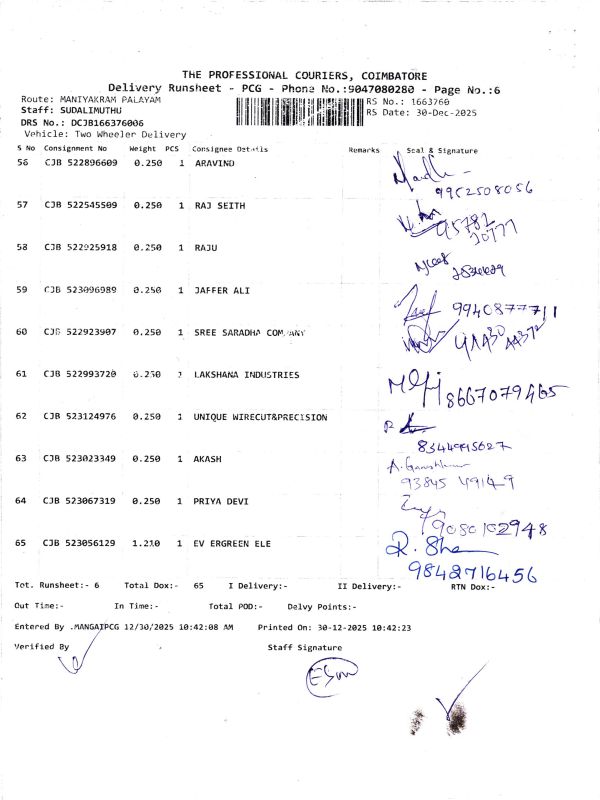 THE PROFESSIONAL COURIERS, COIMBATORE
Delivery Runsheet - PCG - Phone No.:9047080280 - Page No.:6
Route: MANIYAKRAM PALAYAM
Staff: SUDALIMUTHU RS No.: 1663760
DRS No.: DCJB166376006 RS Date: 30-Dec-2025
Vehicle: Two Wheeler Delivery
S No Consignment No Weight PCS Consignee Details Remarks Seal & Signature
56 CJB 522896609 0.250 1 ARAVIND
9952508056
57 CJB 522545509 0.250 1 RAJ SEITH
95782
20777
58 CJB 522925918 0.250 1 RAJU
59 CJB 523096989 0.250 1 JAFFER ALI
9940877711
60 CJB 522923907 0.250 1 SREE SARADHA COMPANY
61 CJB 522993720 0.250 LAKSHANA INDUSTRIES
8667079465
62 CJB 523124976 0.250 1 UNIQUE WIRECUT&PRECISION
8344995627
63 CJB 523023349 0.250 1 AKASH
93845 49149
64 CJB 523067319 0.250 1 PRIYA DEVI
9080102948
65 CJB 523056129 1.210 1 EV ERGREEN ELE
9842716456
Tot. Runsheet:- 6 Total Dox:- 65 I Delivery:- II Delivery:- RTN Dox:-
Out Time:- In Time:- Total POD:- Delvy Points:-
Entered By .MANGAIPCG 12/30/2025 10:42:08 AM Printed On: 30-12-2025 10:42:23
Verified By Staff Signature